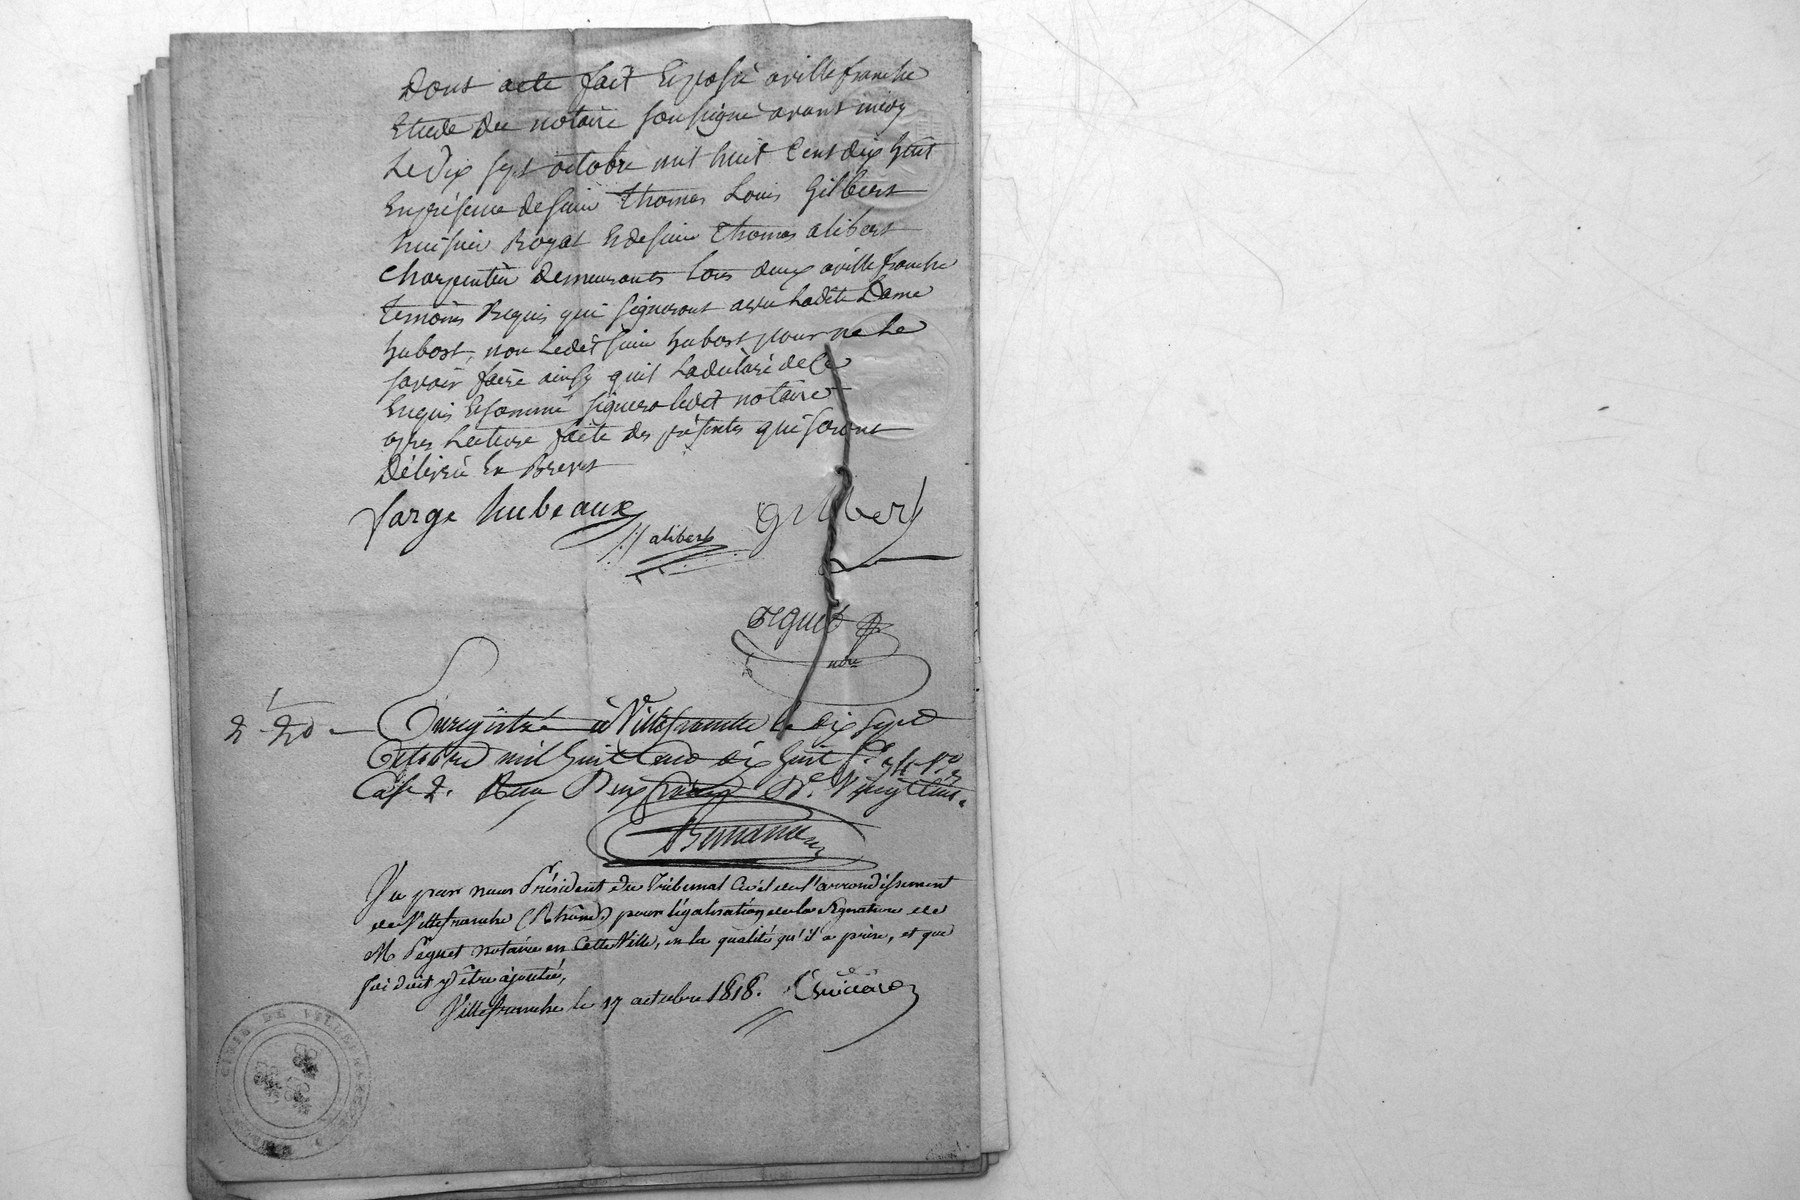 Dont acte fait et passé a villefranche
Etude du notaire soussigné avant midy
Le Dix sept octobre mil huit Cent dix huit
En présence de sieur Thomas Louis Gilbert
huissier Royal et de sieur Thomas alibert
Charpentier demeurants tous deux a villefranche
temoins Requis qui signeront avec Ladite Dame
hubost, non Ledit sieur hubost pour ne Le
savoir faire ainsy quil La déclaré de Ce
Enquis et sommé signera ledit notaire
apres Lecture faite des présentes qui seront
Délivré En Brevet
farge hubeaux
alibert
Gilbert
Péguet
nore
2 20
Enregistré à Villefranche le dix sept
Octobre mil huit Cent dix huit f.° 74 v.°
Case 2. Reçu Deux francs D.e Vingt Cent.
Vu par nous Président du Tribunal Civil de l'arrondissement
de Villefranche (Rhône) pour légalisation de la Signature de
M Péguet notaire en Cette Ville, en la qualité qu'il a prise, et que
foi doit y être ajoutée,
Villefranche le 17 octobre 1818.
CIVIL DE VILLEFRANCHE